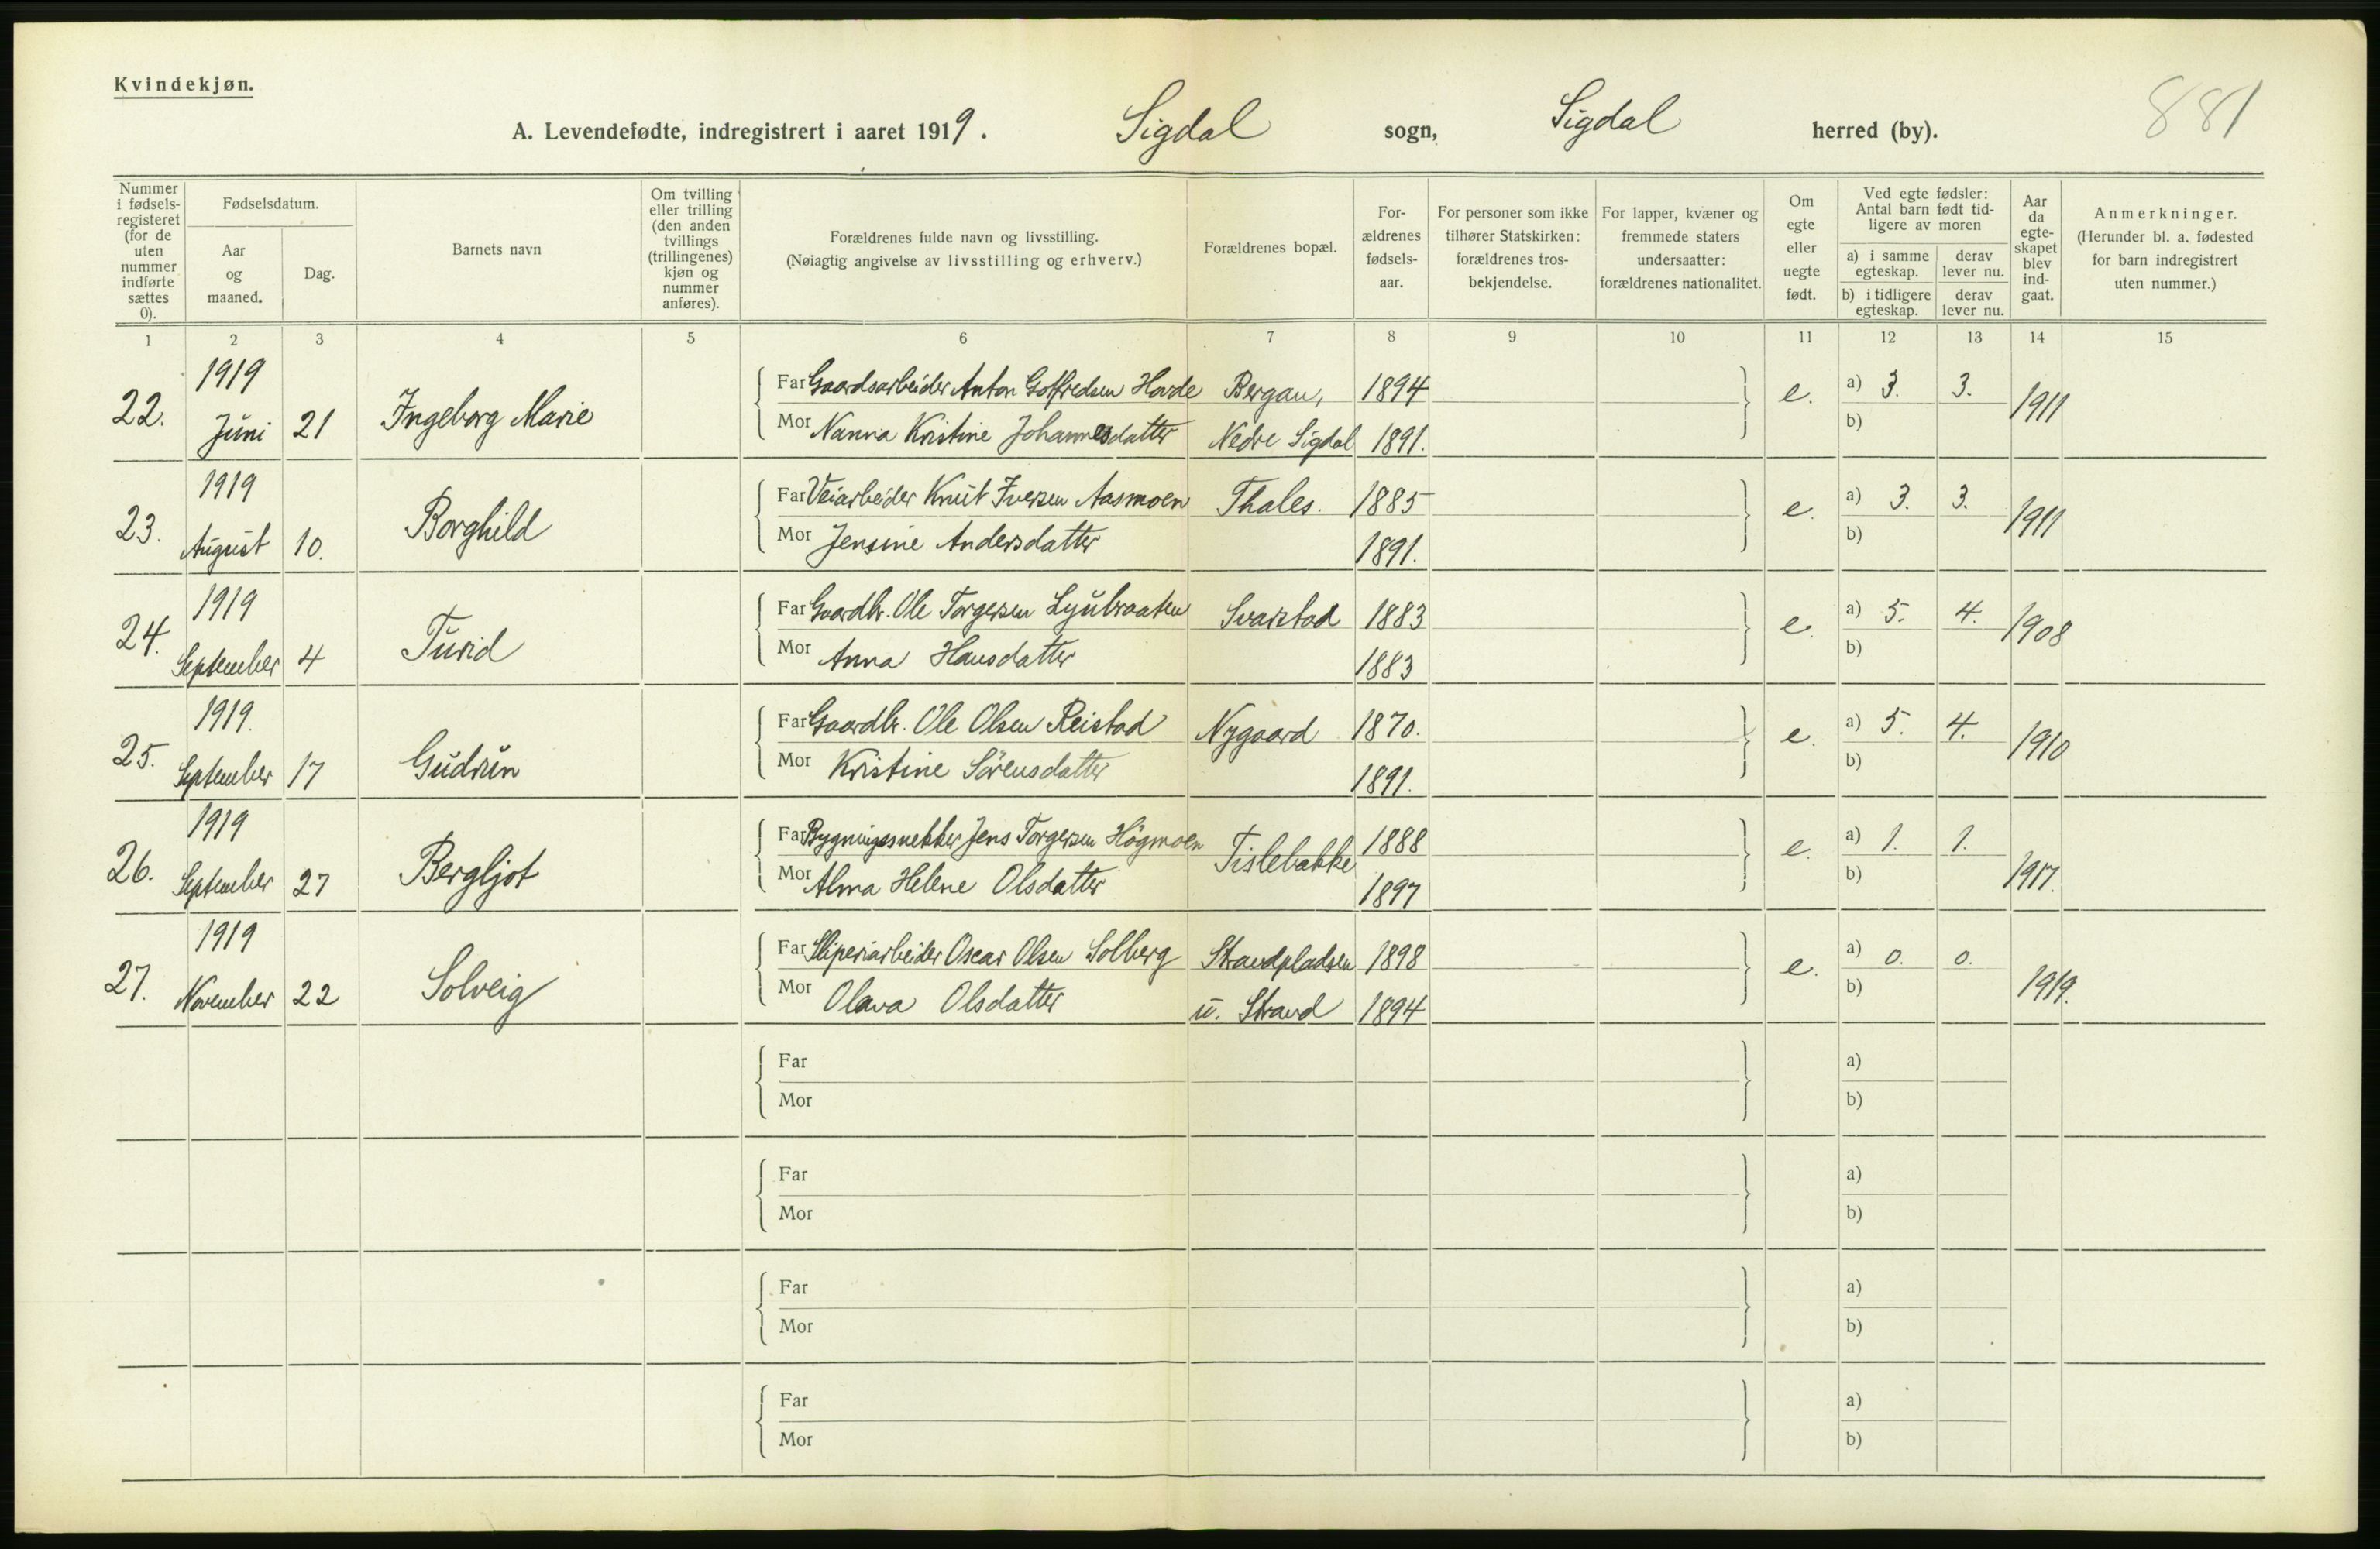 Kvindekjøn.
A. Levendefødte, indregistrert i aaret 1919. Sigdal sogn, Sigdal herred (by). 881
Nummer i fødselsregisteret (for de uten nummer indførte sættes 0).
Fødselsdatum.
Aar og maaned.
Dag.
Barnets navn
Om tvilling eller trilling (den anden tvillings (trillingenes) kjøn og nummer anføres).
Forældrenes fulde navn og livsstilling.
(Nøiagtig angivelse av livsstilling og erhverv.)
Forældrenes bopæl.
Forældrenes fødselsaar.
For personer som ikke tilhører Statskirken: forældrenes trosbekjendelse.
For lapper, kvæner og fremmede staters undersaatter: forældrenes nationalitet.
Om egte eller uegte født.
Ved egte fødsler: Antal barn født tidligere av moren
a) i samme egteskap. derav lever nu.
b) i tidligere egteskap. derav lever nu.
Aar da egteskapet blev indgaat.
Anmerkninger.
(Herunder bl. a. fødested for barn indregistrert uten nummer.)
1 2 3 4 5 6 7 8 9 10 11 12 13 14 15
22. 1919 Juni 21 Ingeborg Marie
Far Gaardsarbeider Anton Gotfredsen Horde Bergan, 1894 e. a) 3. 3. 1911
Mor Nanna Kristine Johannesdatter Nedre Sigdal 1891. b)
23. 1919 August 10. Borghild
Far Veiarbeider Knut Iversen Aasmoen Thales. 1885 e. a) 3. 3. 1911
Mor Jensine Andersdatter 1891. b)
24. 1919 September 4 Turid
Far Gaardbr. Ole Torgersen Lyubraaten Svarstad 1883 e. a) 5. 4. 1908
Mor Anna Hansdatter 1883 b)
25. 1919. September 17 Gudrun
Far Gaardbr. Ole Olsen Reistad Nygaard 1870. e. a) 5. 4. 1910
Mor Kristine Sörensdatter 1891. b)
26. 1919 September 27 Bergljot
Far Bygningssnekker Jens Torgersen Högmoen Tislebakke 1888 e. a) 1. 1. 1917.
Mor Alma Helene Olsdatter 1897 b)
27. 1919 November 22 Solveig
Far Sliperiarbeider Oscar Olsen Solberg Strandpladsen 1898 e. a) 0. 0. 1919.
Mor Olava Olsdatter u. Strand 1894 b)
Far a)
Mor b)
Far a)
Mor b)
Far a)
Mor b)
Far a)
Mor b)